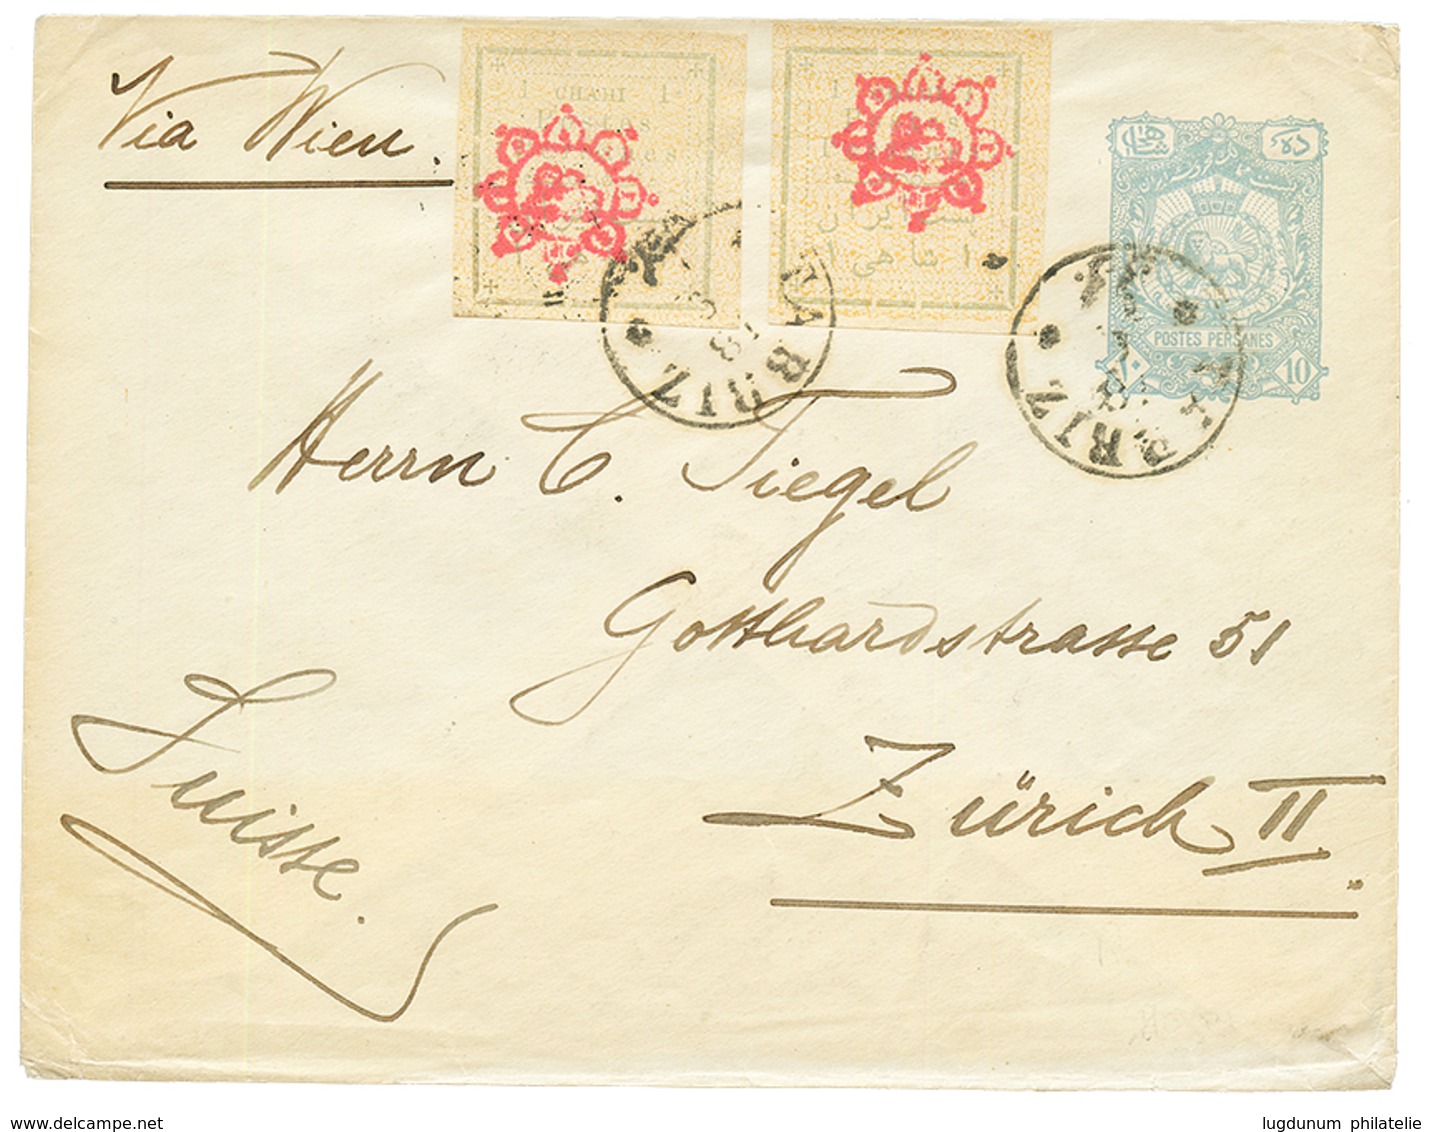 Via Wien.
1 CHAHI 1
TABRIZ
TABRIZ
POSTES PERSANES
۱۰ 10
Herrn C. Tiegel
Gotthardstrasse 51
Zürich II.
Suisse.
delcampe.net
lugdunum philatelie